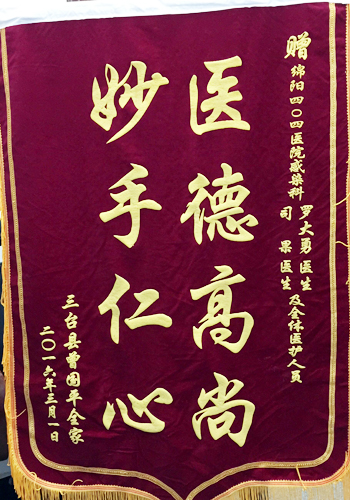 赠 绵阳四〇四医院感染科 罗大勇医生 司果医生 及全体医护人员
医德高尚
妙手仁心
三台县曾国平全家
二〇一六年三月一日